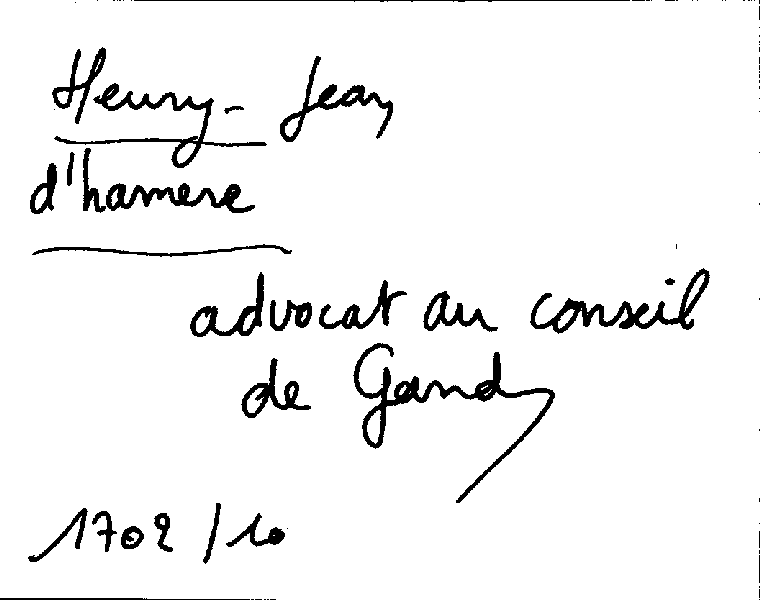 Henry- Jean
d'hamere
advocat au conseil
de Gand
1702 / 10